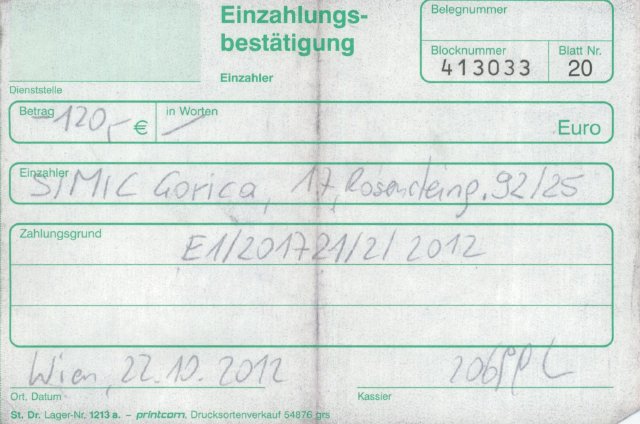 Einzahlungs-
bestätigung
Einzahler
Belegnummer
Blocknummer
413033
Blatt Nr.
20
Dienststelle
Betrag
120,- €
in Worten
Euro
Einzahler
SIMIC Gorica, 17, Rosensteing. 92/25
Zahlungsgrund
E1/201721/2/2012
Wien, 22.10.2012
Ort, Datum
Kassier
St. Dr. Lager-Nr. 1213 a. – printcom. Drucksortenverkauf 54876 grs